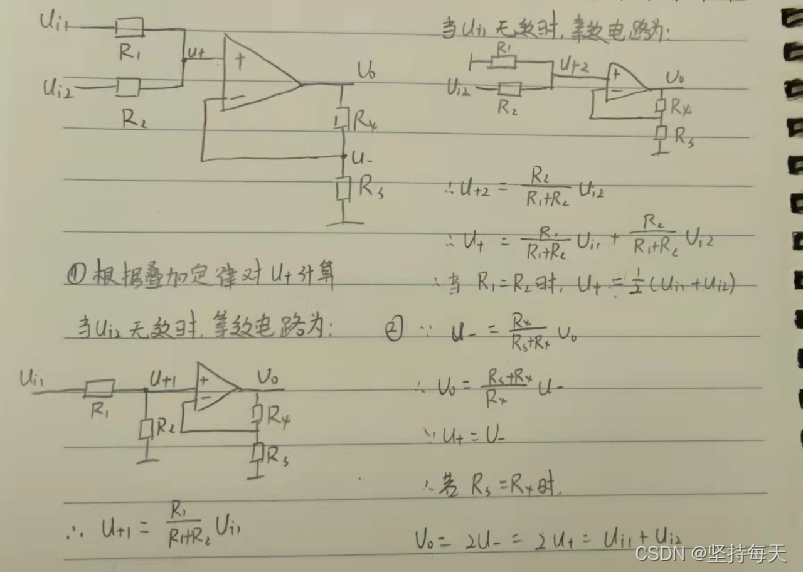 Ui1
R1
U+
Ui2
R2
+
-
Uo
R4
U-
R3
①根据叠加定律对U+计算
当Ui2无效时,等效电路为:
Ui1
R1
U+1
R2
+
-
Uo
R4
R3
∴ U+1 = R1/(R1+R2) Ui1
当Ui1无效时,等效电路为:
R1
U+2
Ui2
R2
+
-
Uo
R4
R3
∴ U+2 = R2/(R1+R2) Ui2
∴ U+ = R1/(R1+R2) Ui1 + R2/(R1+R2) Ui2
∴当 R1=R2时, U+ = 1/2 (Ui1+Ui2)
② ∵ U- = R4/(R3+R4) Uo
∴ Uo = (R3+R4)/R4 U-
∵ U+ = U-
∴若 R3=R4时,
Uo = 2U- = 2U+ = Ui1 + Ui2
CSDN @坚持每天